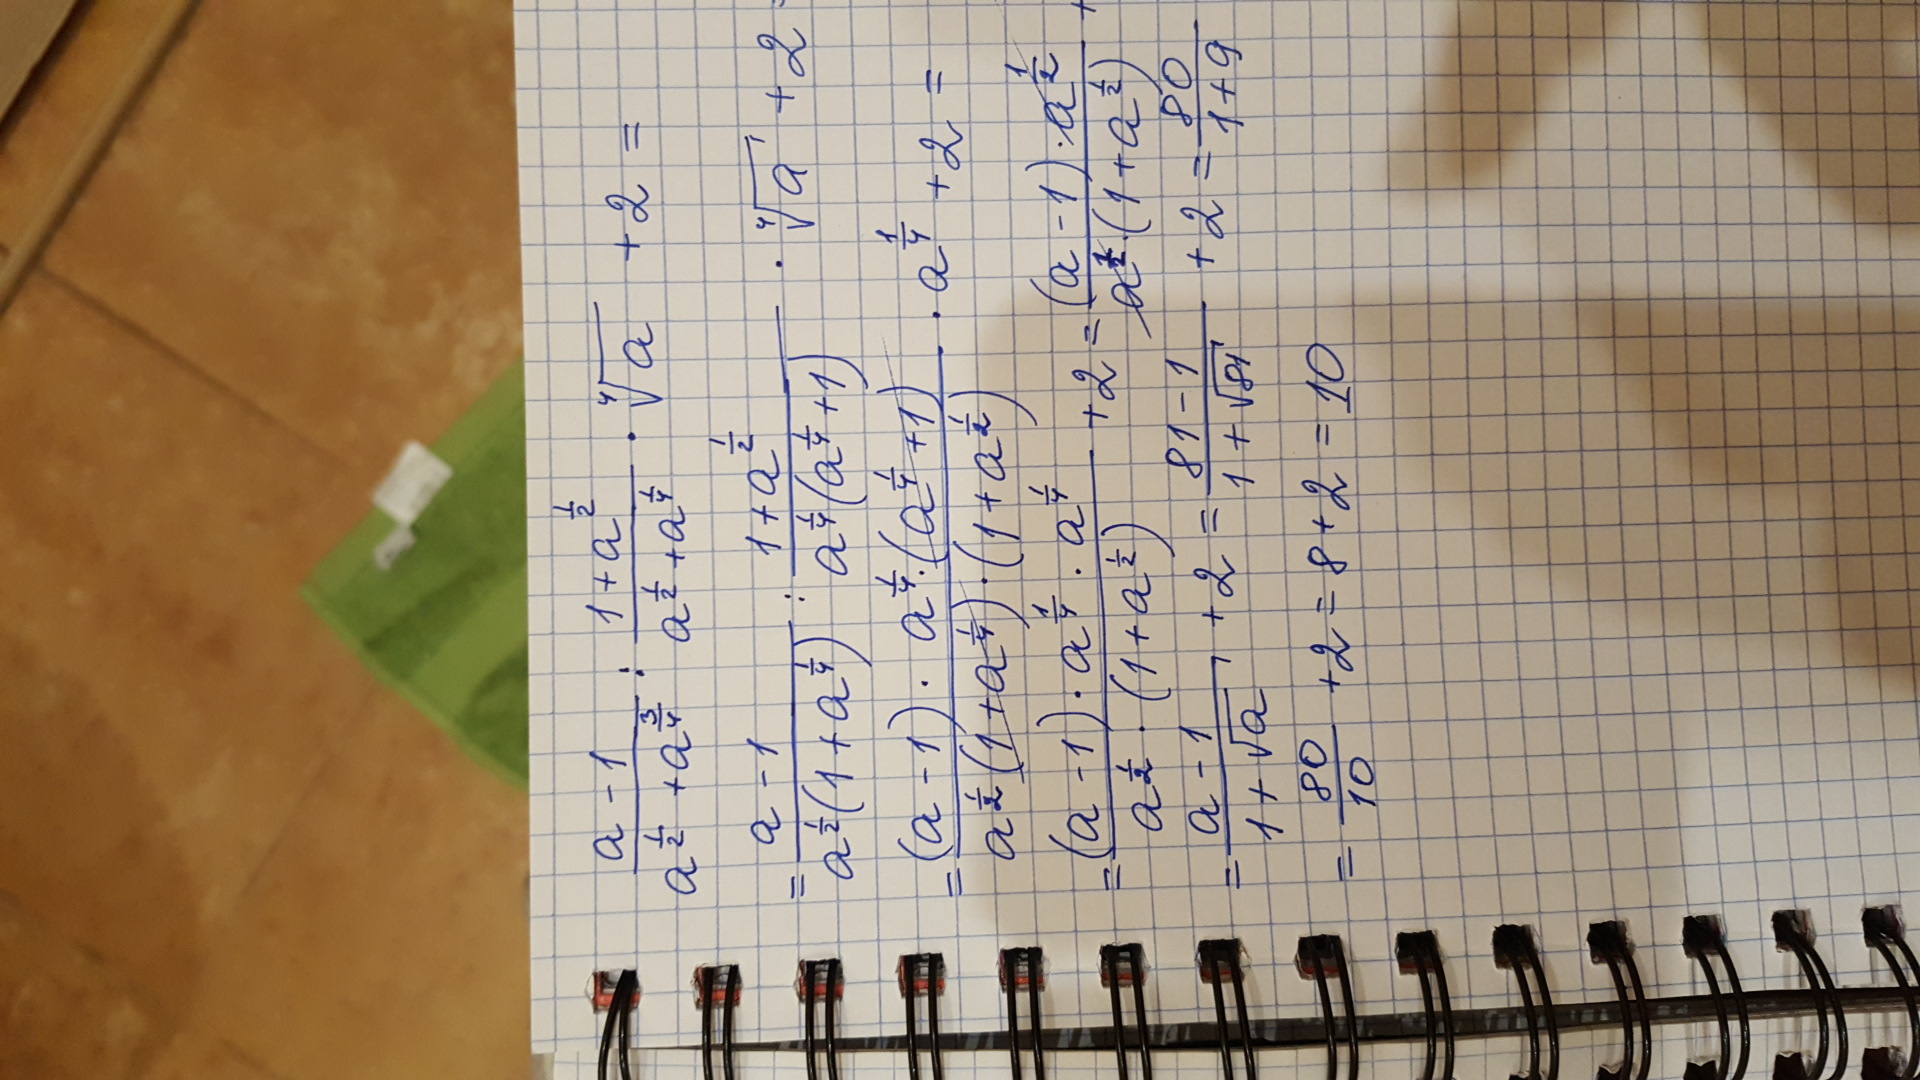 \frac{a-1}{a^{\frac{1}{2}}+a^{\frac{3}{4}}} : \frac{1+a^{\frac{1}{2}}}{a^{\frac{1}{2}}+a^{\frac{1}{4}}} \cdot \sqrt[4]{a} +2 =
= \frac{a-1}{a^{\frac{1}{2}}(1+a^{\frac{1}{4}})} : \frac{1+a^{\frac{1}{2}}}{a^{\frac{1}{4}}(a^{\frac{1}{4}}+1)} \cdot \sqrt[4]{a} +2 =
= \frac{(a-1) \cdot a^{\frac{1}{4}} \cdot (a^{\frac{1}{4}}+1)}{a^{\frac{1}{2}}(1+a^{\frac{1}{4}}) \cdot (1+a^{\frac{1}{2}})} \cdot a^{\frac{1}{4}} +2 =
= \frac{(a-1) \cdot a^{\frac{1}{4}} \cdot a^{\frac{1}{4}}}{a^{\frac{1}{2}} \cdot (1+a^{\frac{1}{2}})} +2 = \frac{(a-1) \cdot a^{\frac{1}{2}}}{a^{\frac{1}{2}} \cdot (1+a^{\frac{1}{2}})} +
= \frac{a-1}{1+\sqrt{a}} +2 = \frac{81-1}{1+\sqrt{81}} +2 = \frac{80}{1+9}
= \frac{80}{10} +2 = 8+2 = 10